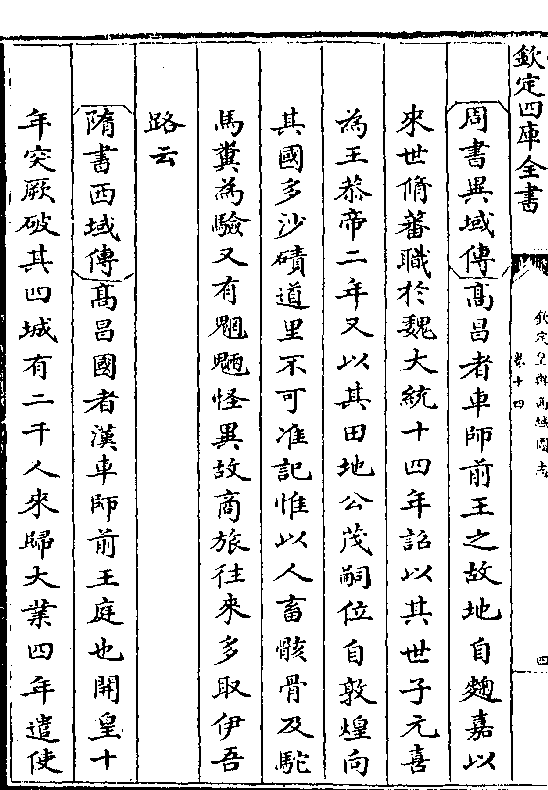 欽定四庫全書
欽定皇輿西域圖志
卷十四
四
周書異域傳高昌者車師前王之故地自麴嘉以
來世脩蕃職於魏大統十四年詔以其世子元喜
為王恭帝二年又以其田地公茂嗣位自敦煌向
其國多沙磧道里不可准記惟以人畜骸骨及駝
馬糞為驗又有魍魎怪異故商旅往來多取伊吾
路云
隋書西域傳高昌國者漢車師前王庭也開皇十
年突厥破其四城有二千人來歸大業四年遣使